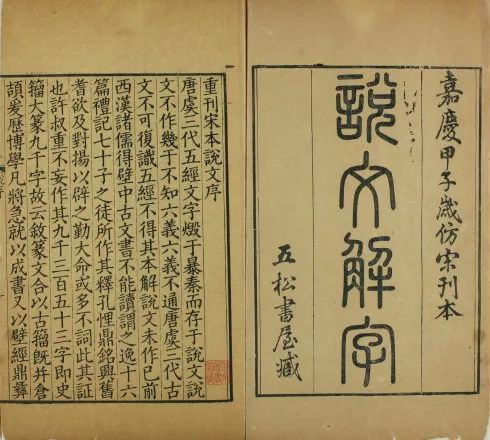 嘉慶甲子歲仿宋刊本
說文解字
五松書屋藏
重刊宋本說文序
唐虞三代五經文字燬于暴秦而存于說文說
文不作幾于不知六義六義不通唐虞三代古
文不可復識五經不得其本解說文未作已前
西漢諸儒得壁中古文書不能讀謂之逸十六
篇禮記七十子之徒所作其釋孔悝鼎銘興舊
耆欲及對揚以辟之勤大命或多不詞此其証
也許叔重不妄作其九千三百五十三字即史
籀大篆九千字故云敘篆文合以古籀旣并倉
頡爰歷博學凡將急就以成書又以壁經鼎彝